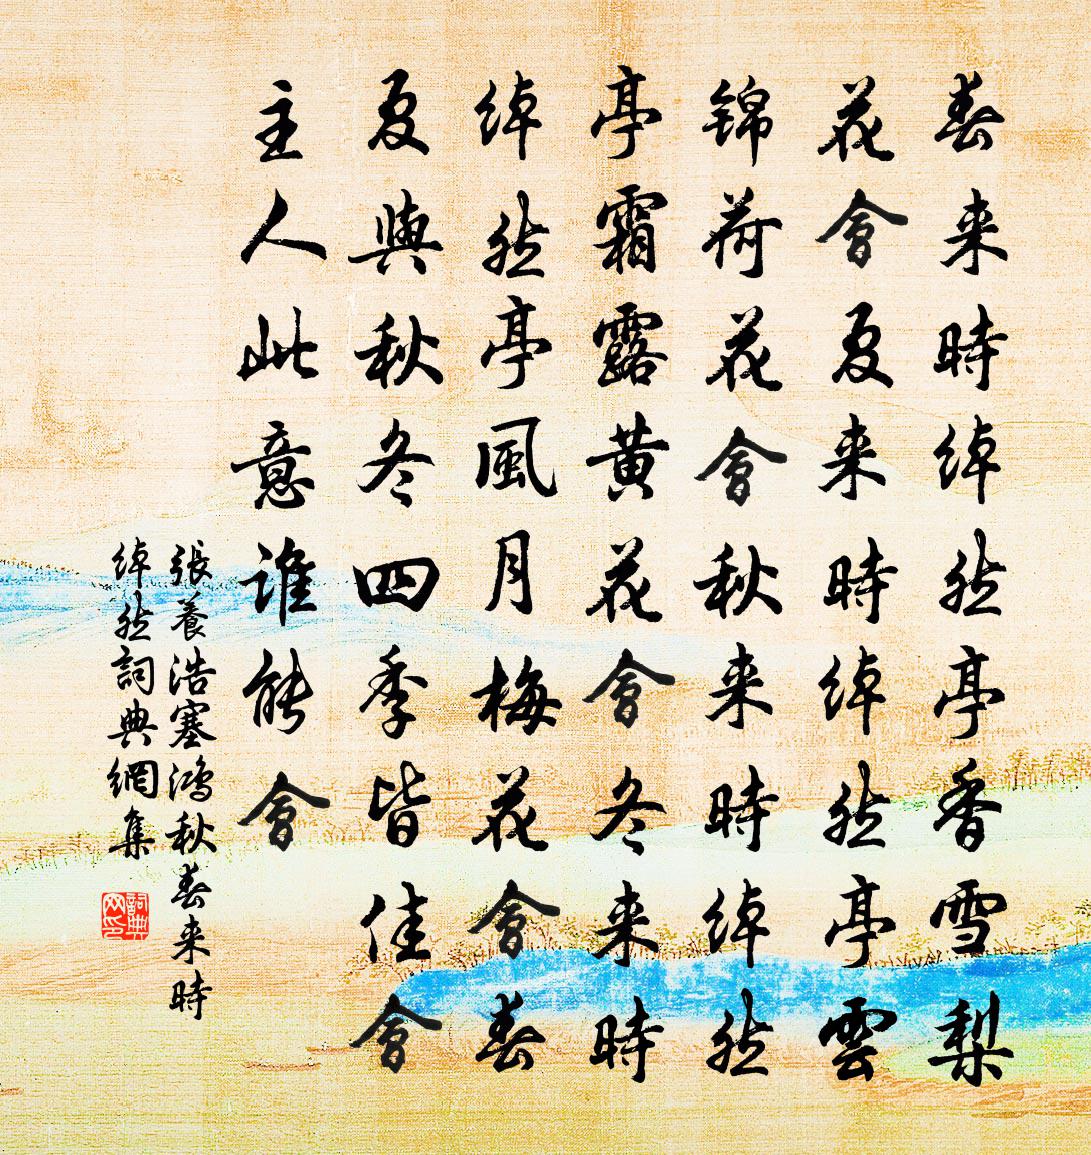 春来時綽然亭香雪梨
花會夏来時綽然亭雲
锦荷花會秋来時綽然
亭霜露黄花會冬来時
綽然亭風月梅花會春
夏與秋冬四季皆佳會
主人此意誰能會
張養浩塞鴻秋春来時
綽然詞典網集
詞典网印